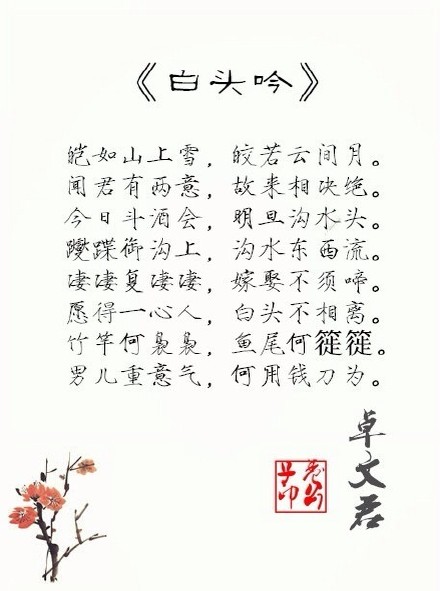 《白头吟》
皑如山上雪，皎若云间月。
闻君有两意，故来相决绝。
今日斗酒会，明旦沟水头。
躞蹀御沟上，沟水东西流。
凄凄复凄凄，嫁娶不须啼。
愿得一心人，白头不相离。
竹竿何袅袅，鱼尾何簁簁。
男儿重意气，何用钱刀为。
卓文君